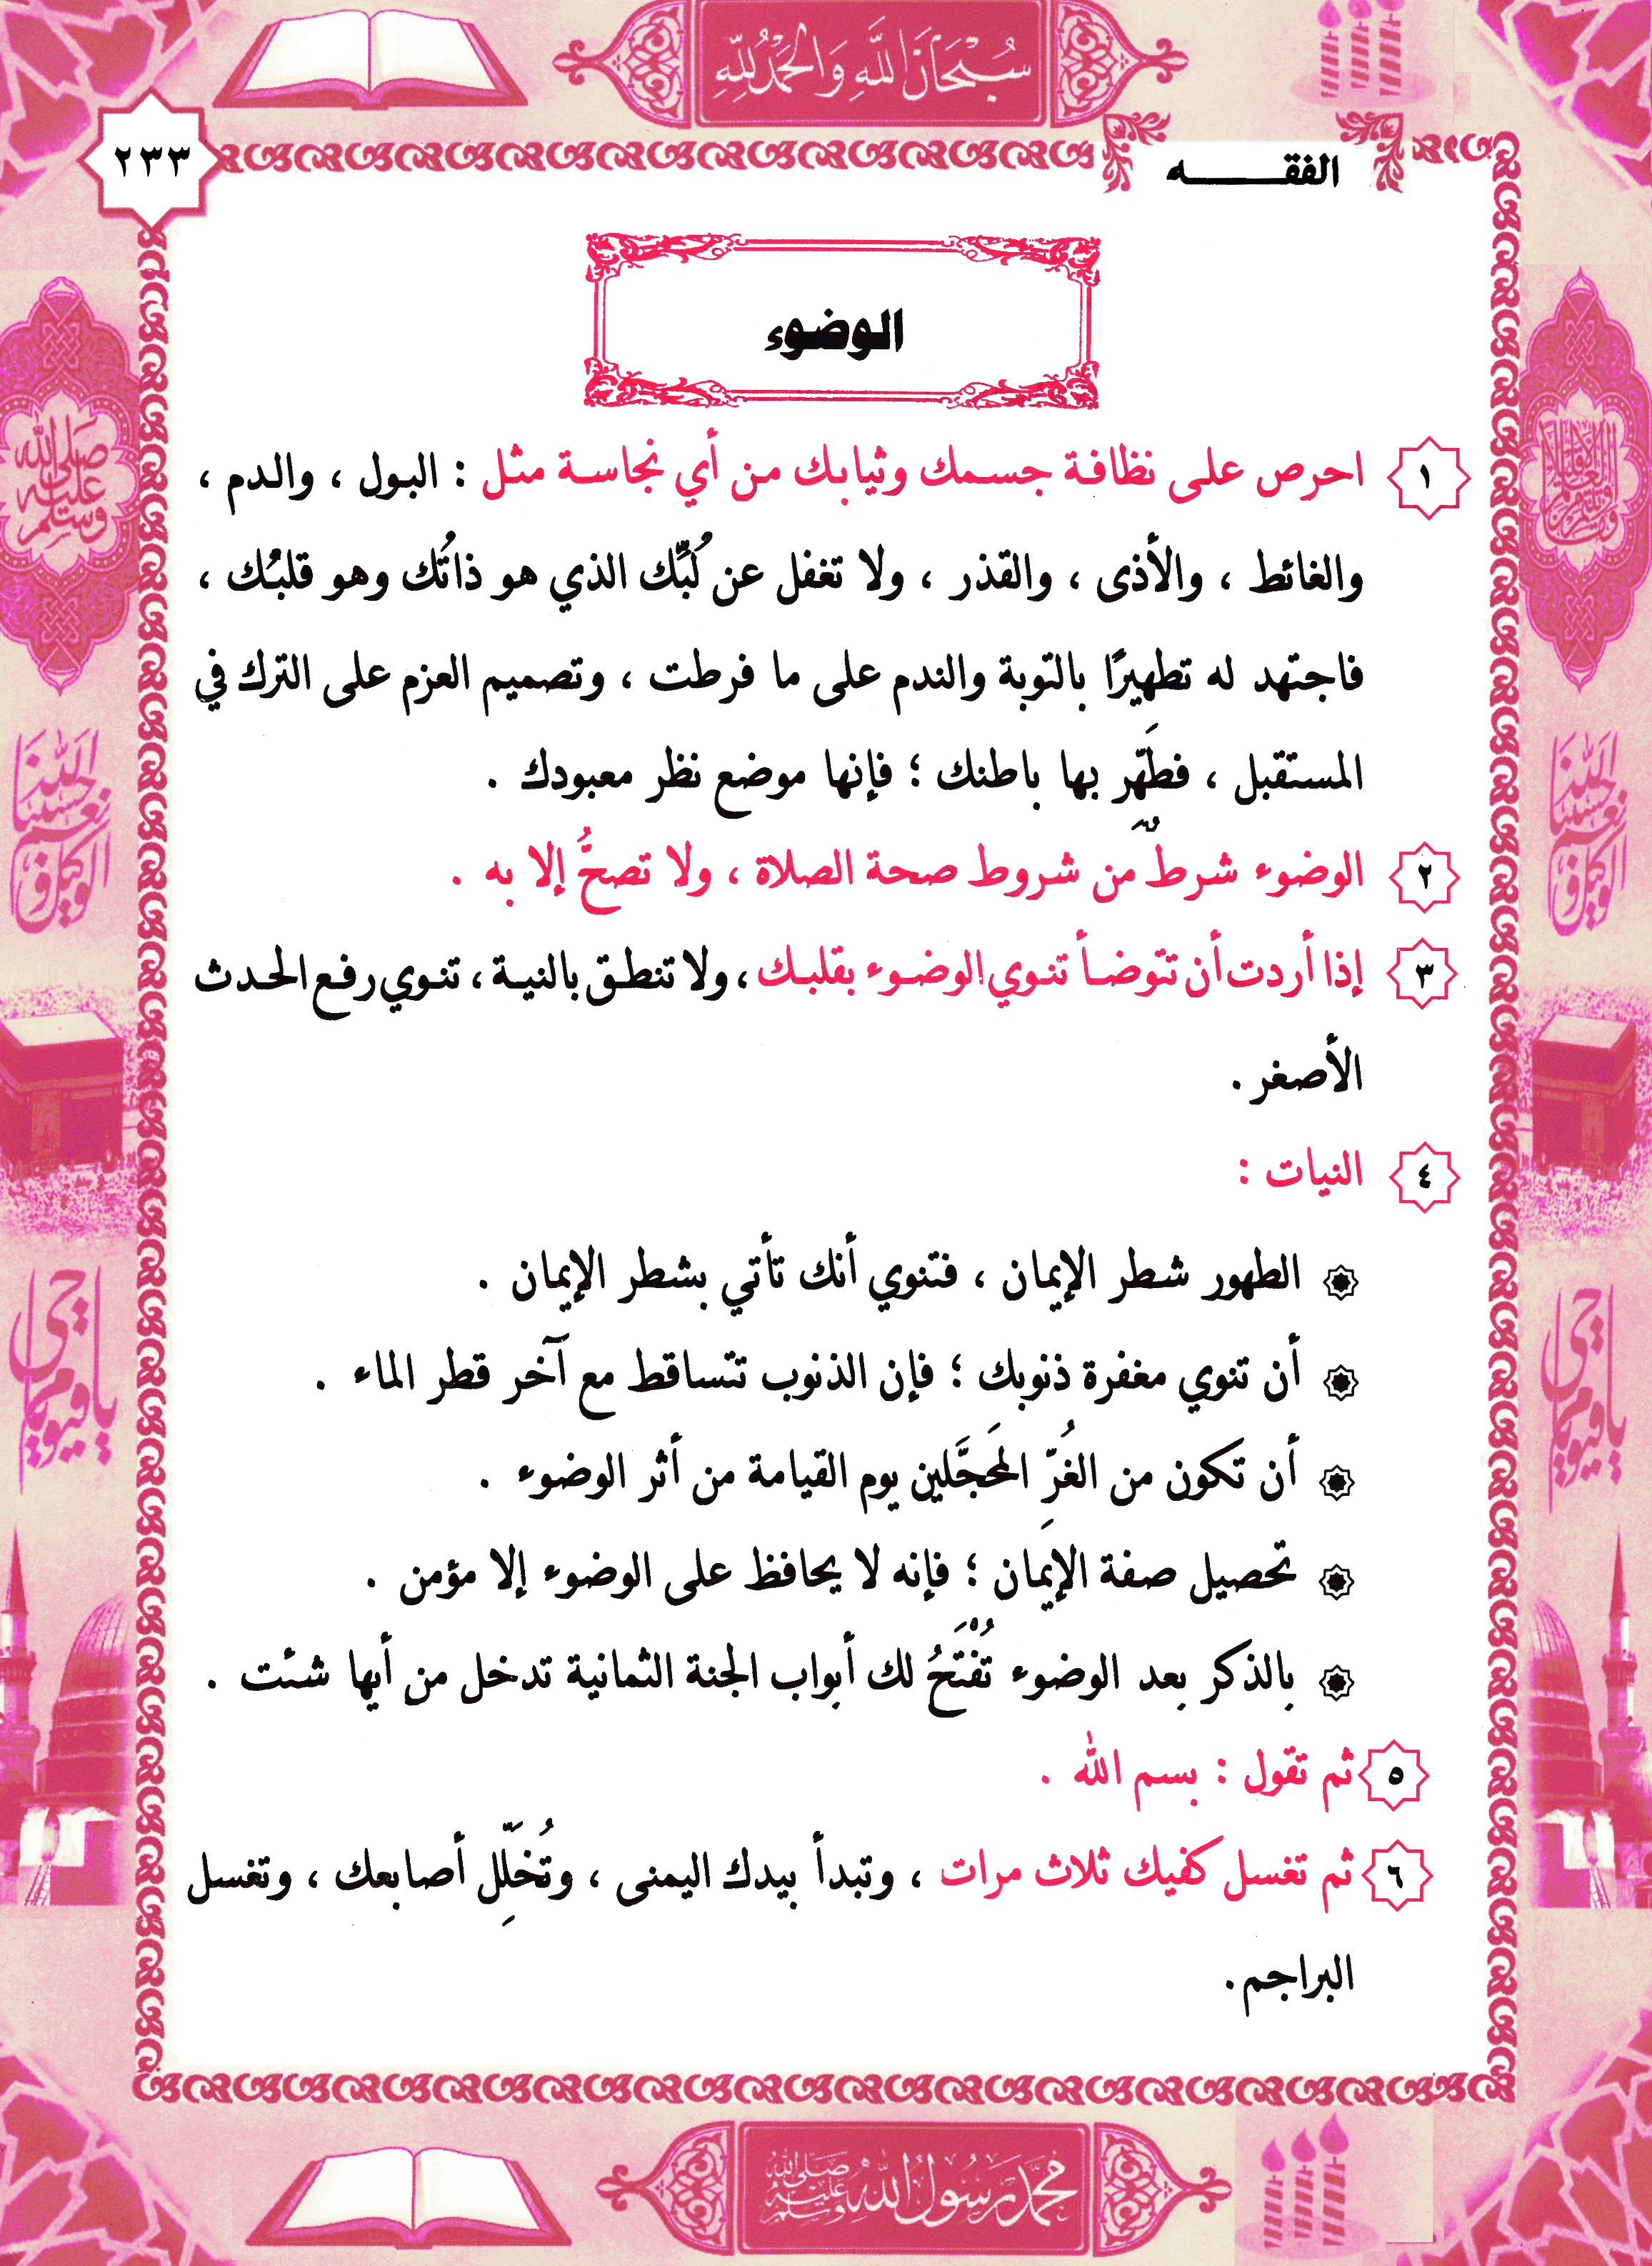 سُبْحَانَ اللَّهِ وَالْحَمْدُ لِلَّهِ
الفقـــــه
٢٣٣
الوضوء
١ احرص على نظافة جسمك وثيابك من أي نجاسة مثل : البول ، والدم ،
والغائط ، والأذى ، والقذر ، ولا تغفل عن لُبِّك الذي هو ذاتُك وهو قلبُك ،
فاجتهد له تطهيرًا بالتوبة والندم على ما فرطت ، وتصميم العزم على الترك في
المستقبل ، فطَهِّر بها باطنك ؛ فإنها موضع نظر معبودك .
٢ الوضوء شرطٌ من شروط صحة الصلاة ، ولا تصحُّ إلا به .
٣ إذا أردت أن تتوضأ تنوي الوضوء بقلبك ، ولا تنطق بالنية ، تنوي رفع الحدث
الأصغر .
٤ النيات :
الطهور شطر الإيمان ، فتنوي أنك تأتي بشطر الإيمان .
أن تنوي مغفرة ذنوبك ؛ فإن الذنوب تتساقط مع آخر قطر الماء .
أن تكون من الغُرِّ المَحَجَّلين يوم القيامة من أثر الوضوء .
تحصيل صفة الإيمان ؛ فإنه لا يحافظ على الوضوء إلا مؤمن .
بالذكر بعد الوضوء تُفْتَحُ لك أبواب الجنة الثمانية تدخل من أيها شئت .
٥ ثم تقول : بسم الله .
٦ ثم تغسل كفيك ثلاث مرات ، وتبدأ بيدك اليمنى ، وتُخَلِّل أصابعك ، وتغسل
البراجم .
صلى الله عليه وسلم
حسبنا الله ونعم الوكيل
يا حي يا قيوم
حسبنا الله ونعم الوكيل
يا حي يا قيوم
محمد رسول الله صلى الله عليه وسلم